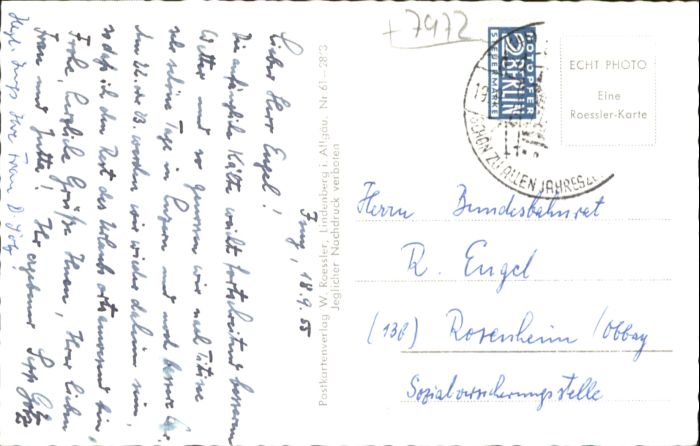 +7972
NOTOPFER
2 BERLIN
STEUERMARKE
SCHÖN ZU ALLEN JAHRESZE
ECHT PHOTO
Eine
Roessler-Karte
Herrn Bundesbahnrat
R. Engel
(13b) Rosenheim/Obbay
Sozialversicherungsstelle
Postkartenverlag W. Roessler, Lindenberg i. Allgäu. Nr. 61-28/3
Jeglicher Nachdruck verboten
18.9.55
Lieber Herr Engel!
Die anfängliche Kälte weicht fortschreitend besserem
Wetter und so genossen wir viel
sehr schöne Tage in und noch bessere
Am 22. oder 23. werden wir wieder daheim sein,
so daß ich den Rest des Urlaubs ortsanwesend bin.
Frohe, herzliche Grüße Ihnen, Ihrer lieben
Frau und Jutta! Ihr ergebener Sepp Götz
Ihre Frau D. Götz